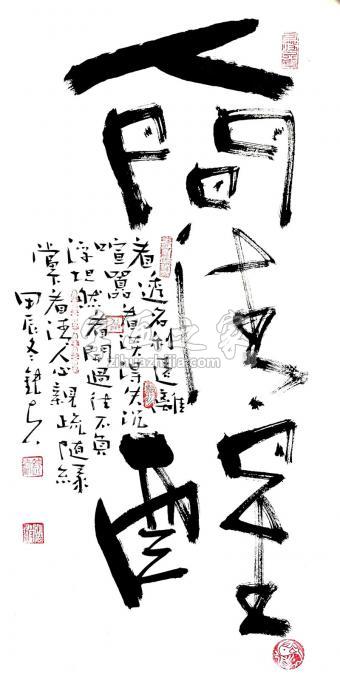 人間清醒
看透名利遠離
喧囂看淡得失沉
浮坦然看開過往不負
當下看清人心親疏隨緣
甲辰冬